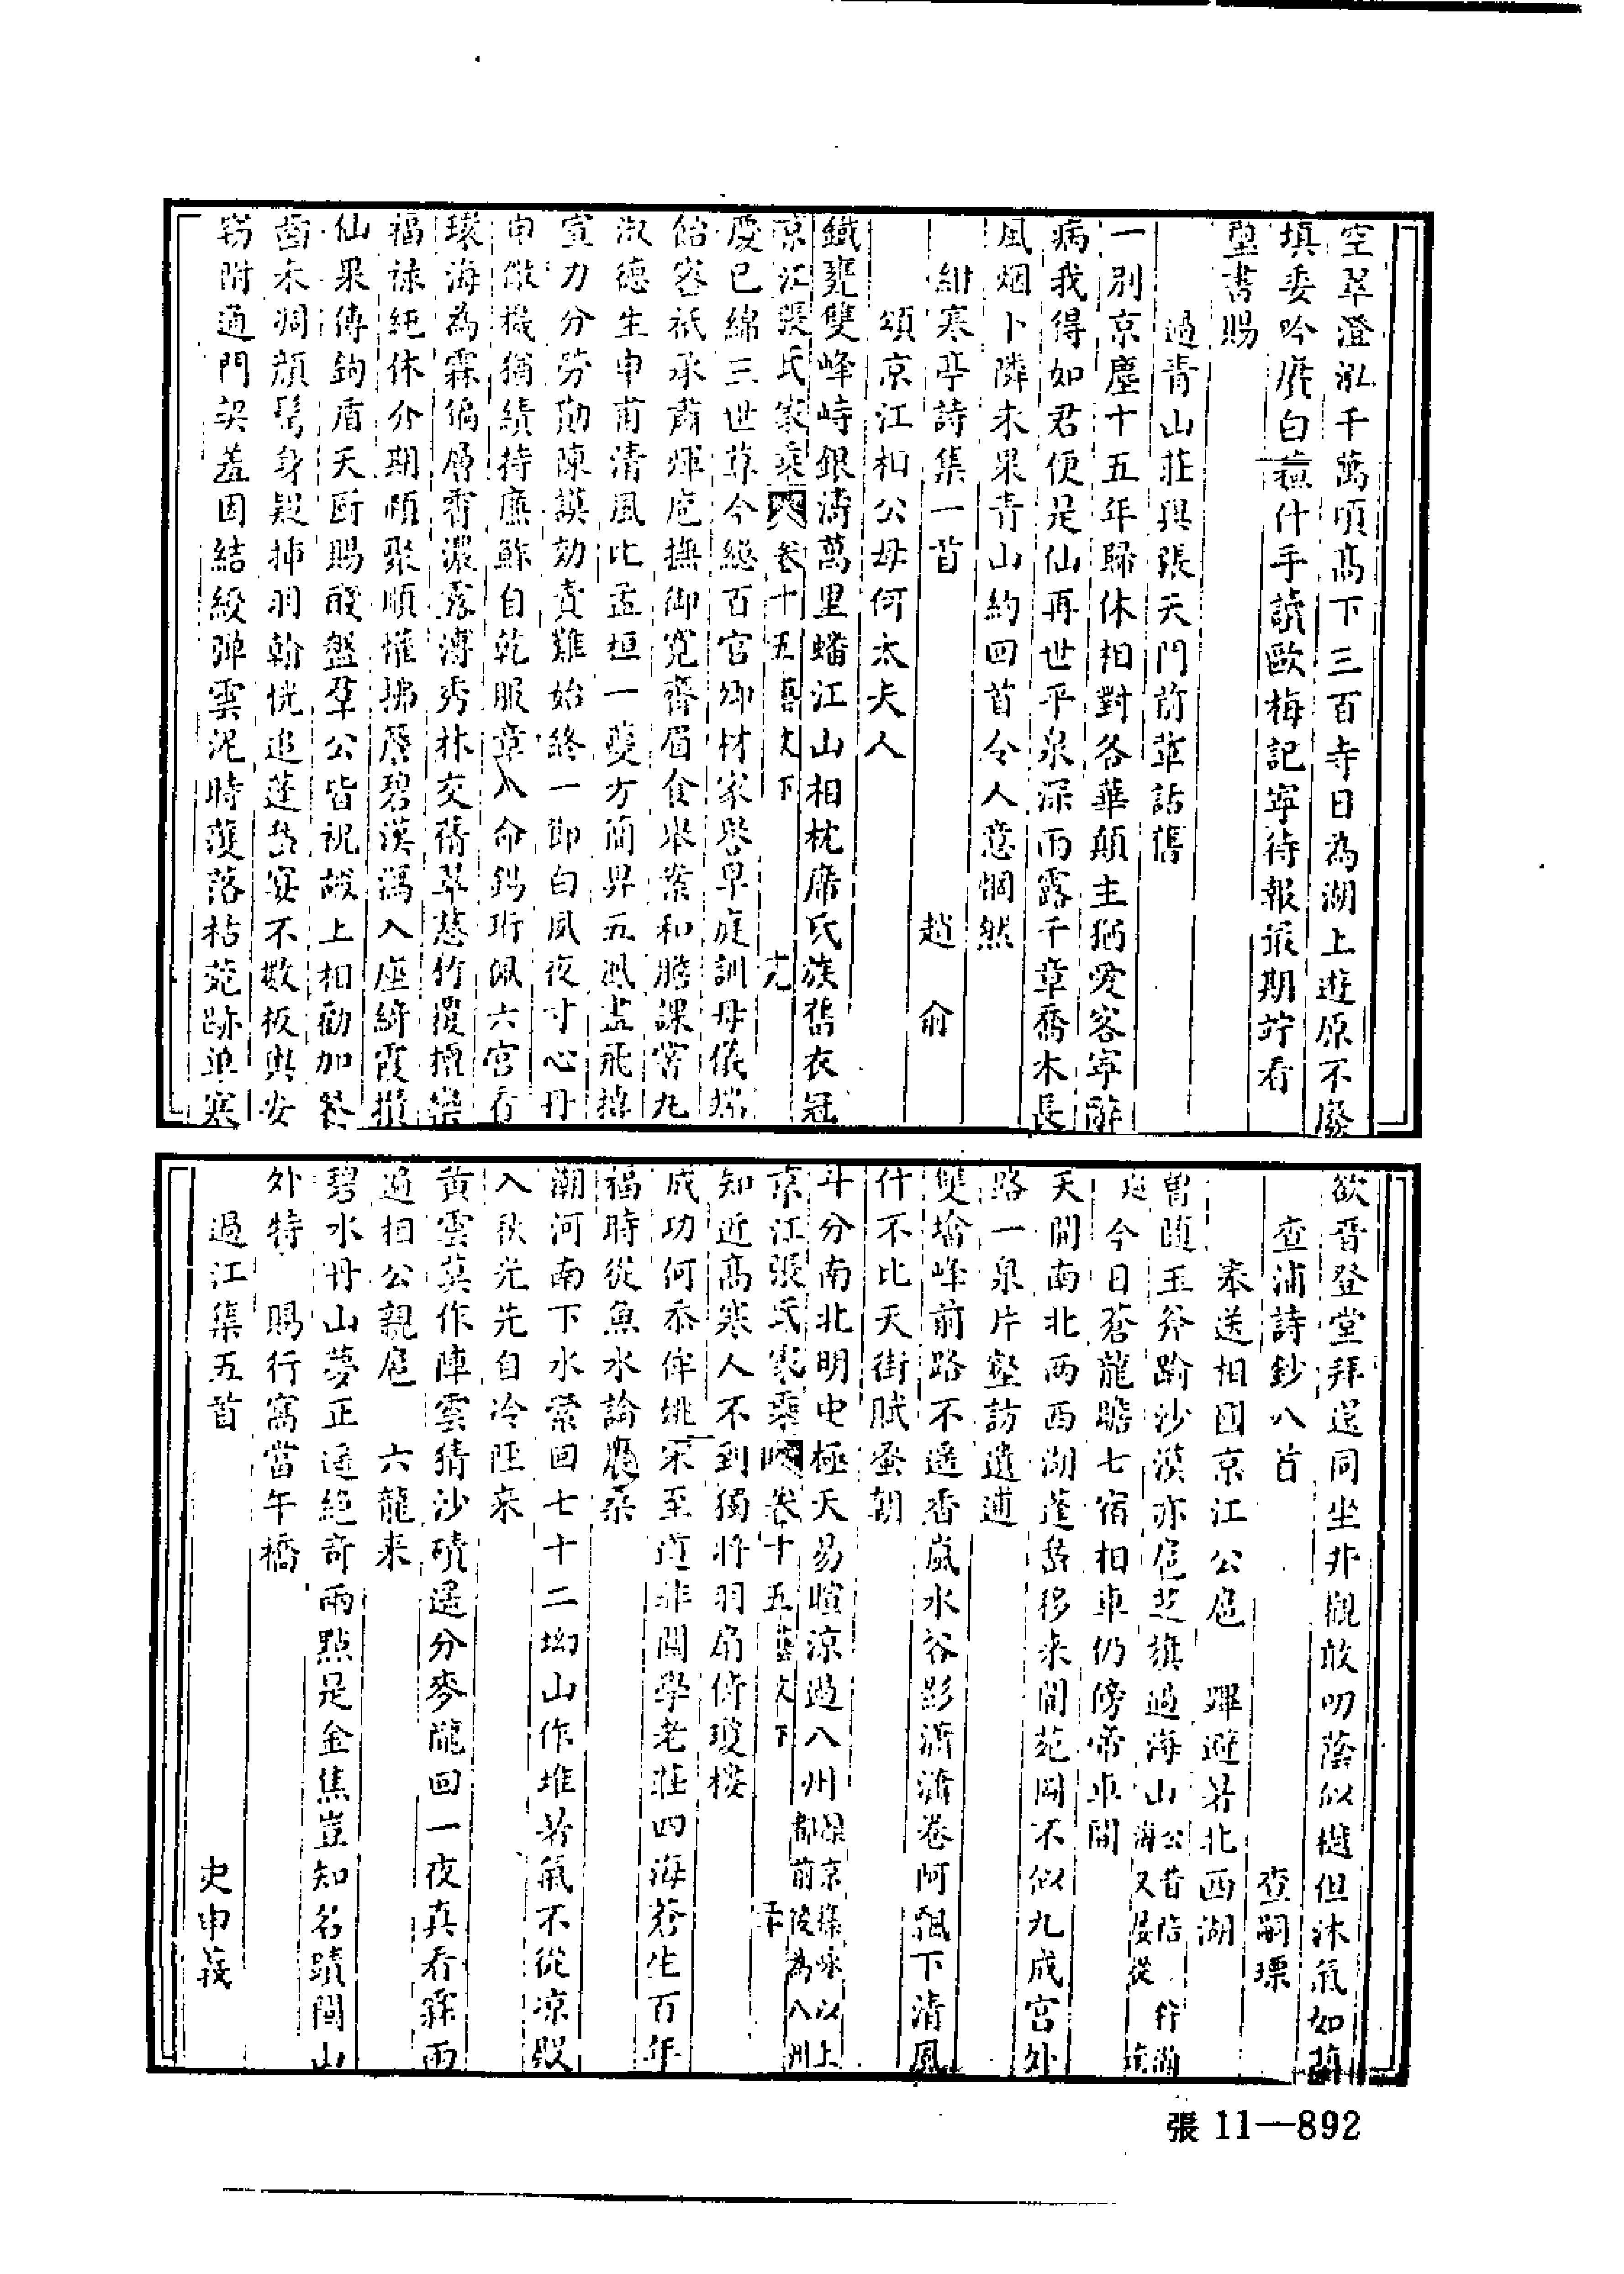 空翠澄泓千萬頃髙下三百寺日為湖上遊原不廢
填委吟賡白蘓什手讀歐梅記寧待報最期竚看
璽書賜
過青山莊與張天門前輩話舊
一別京塵十五年歸休相對各華顛主猶愛客寧辭
病我得如君便是仙再世平泉深雨露千章喬木長
風烟卜隣未果青山約回首令人意惘然
紺寒亭詩集一首
趙俞
頌京江相公母何太夫人
鐵甕雙峰峙銀濤萬里蟠江山相枕席氏族舊衣冠
京江張氏家乘 卷十五藝文下 尤
慶已綿三世尊今総百官卿材家學早庭訓母儀端
飴容祇承肅煇庖撫御寛齋眉食舉案和膽課嘗丸
淑德生申甫清風比孟桓一夔方簡畀五鳳盡飛摶
宣力分勞勩陳謨効責難始終一節白夙夜寸心丹
申儆機猶績持廉鮓自乾服章入命錫珩佩六宮看
環海為霖徧層霄濃露漙秀林交蒨翠慈竹覆檀欒
福祿純休介期頤聚順懽拂簷碧漢滿入座綺霞攢
仙果傳鉤盾天厨賜醆盤羣公皆祝嘏上相勸加餐
齒未凋顏髩身疑揷羽翰恍追蓬島宴不數板輿安
窃附通門契羞因結綬彈雲泥時濩落枯菀跡單寒
欲晉登堂拜還同坐井觀敢叨蔭似樾但沐氣如蘭
查浦詩鈔八首
查嗣瑮
奉送相國京江公扈 蹕避暑北西湖
曽随玉斧踰沙漠亦扈芝旗過海山
今日蒼龍瞻七宿相車仍傍帝車間
天開南北西西湖蓬島移来閬苑圖不似九成宮外
路一泉片壑訪遺逋
雙塔峰前路不遥香嵐水谷影瀟瀟卷阿飄下清風
什不比天街賦蚤朝
斗分南北明中極天易暄凉過八州
京江張氏家乘 卷十五藝文下
知近髙寒人不到獨將羽扇倚瓊樓
成功何忝侔姚宋至道非關學老莊四海蒼生百年
福時從魚水論農桑
潮河南下水縈回七十二坳山作堆暑氣不從凉殿
入秋光先自冷陘来
黄雲莫作陣雲猜沙磧遥分麥隴回一夜真看霖雨
過相公親扈 六龍来
碧水丹山夢正遥絕竒兩點是金焦豈知名蹟關山
外特 賜行窩當午橋
過江集五首
史申義
張 11—892